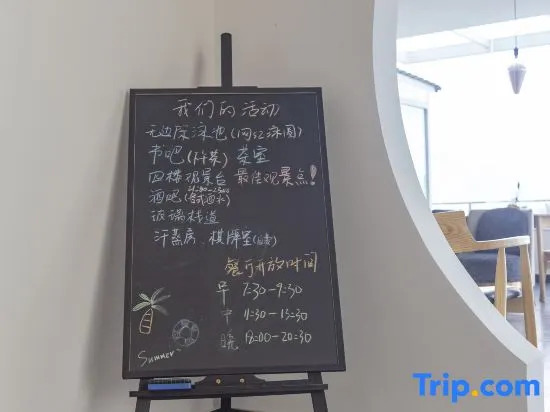 我们的活动
无边际泳池(网红泳圈)
书吧() 茶室
四楼观景台 最佳观景点!
酒吧(各式酒水)
玻璃栈道
汗蒸房、棋牌室()
餐厅开放时间
早 7:30-9:30
中 11:30-13:30
晚 18:00-20:30
Summer
Trip.com